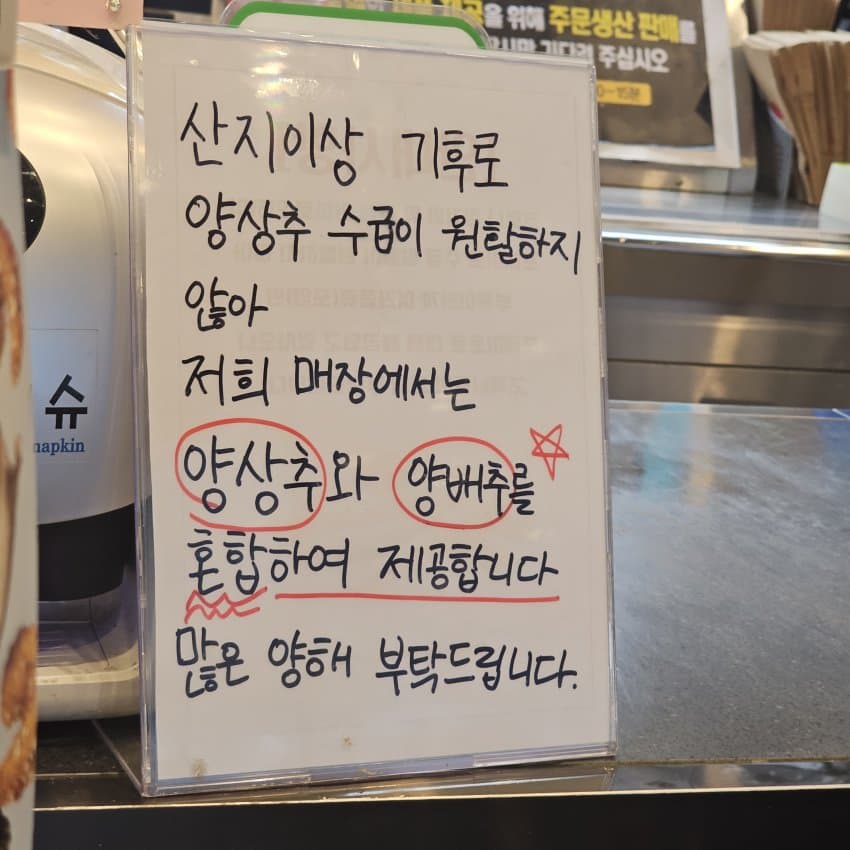 을 위해 주문생산 판매를
기다려 주십시오
산지이상 기후로
양상추 수급이 원할하지
않아
저희 매장에서는
양상추와 양배추를
혼합하여 제공합니다
많은 양해 부탁드립니다.
슈
napkin